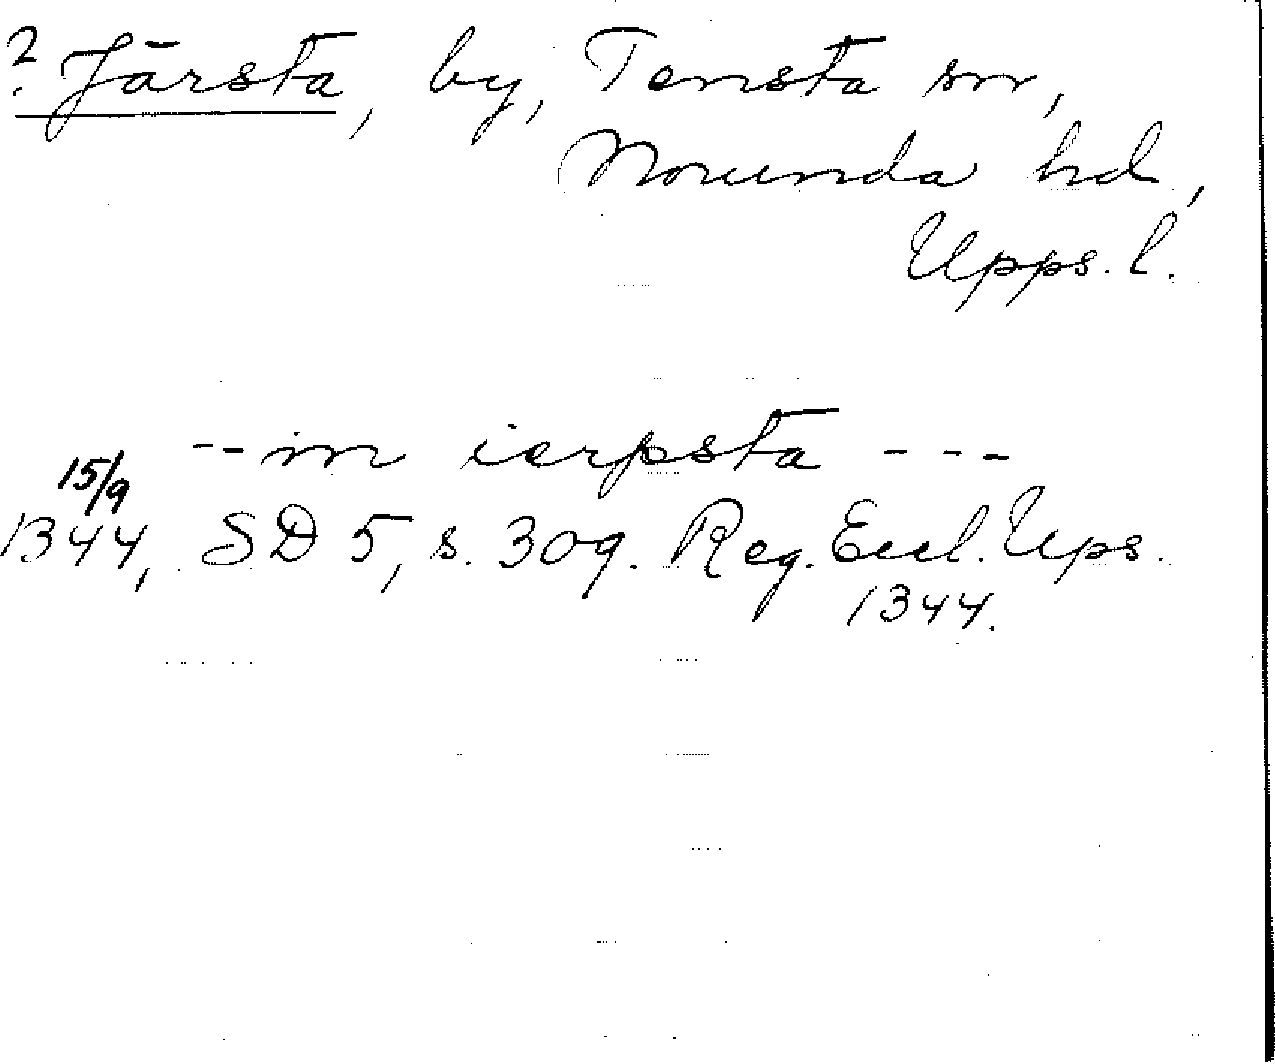 ? Järsta, by, Tensta sn,
Norunda hd,
Upps. l.
-- in ierpsta ---
15/9
1344, SD 5, s. 309. Reg. Eccl. Ups.
1344.